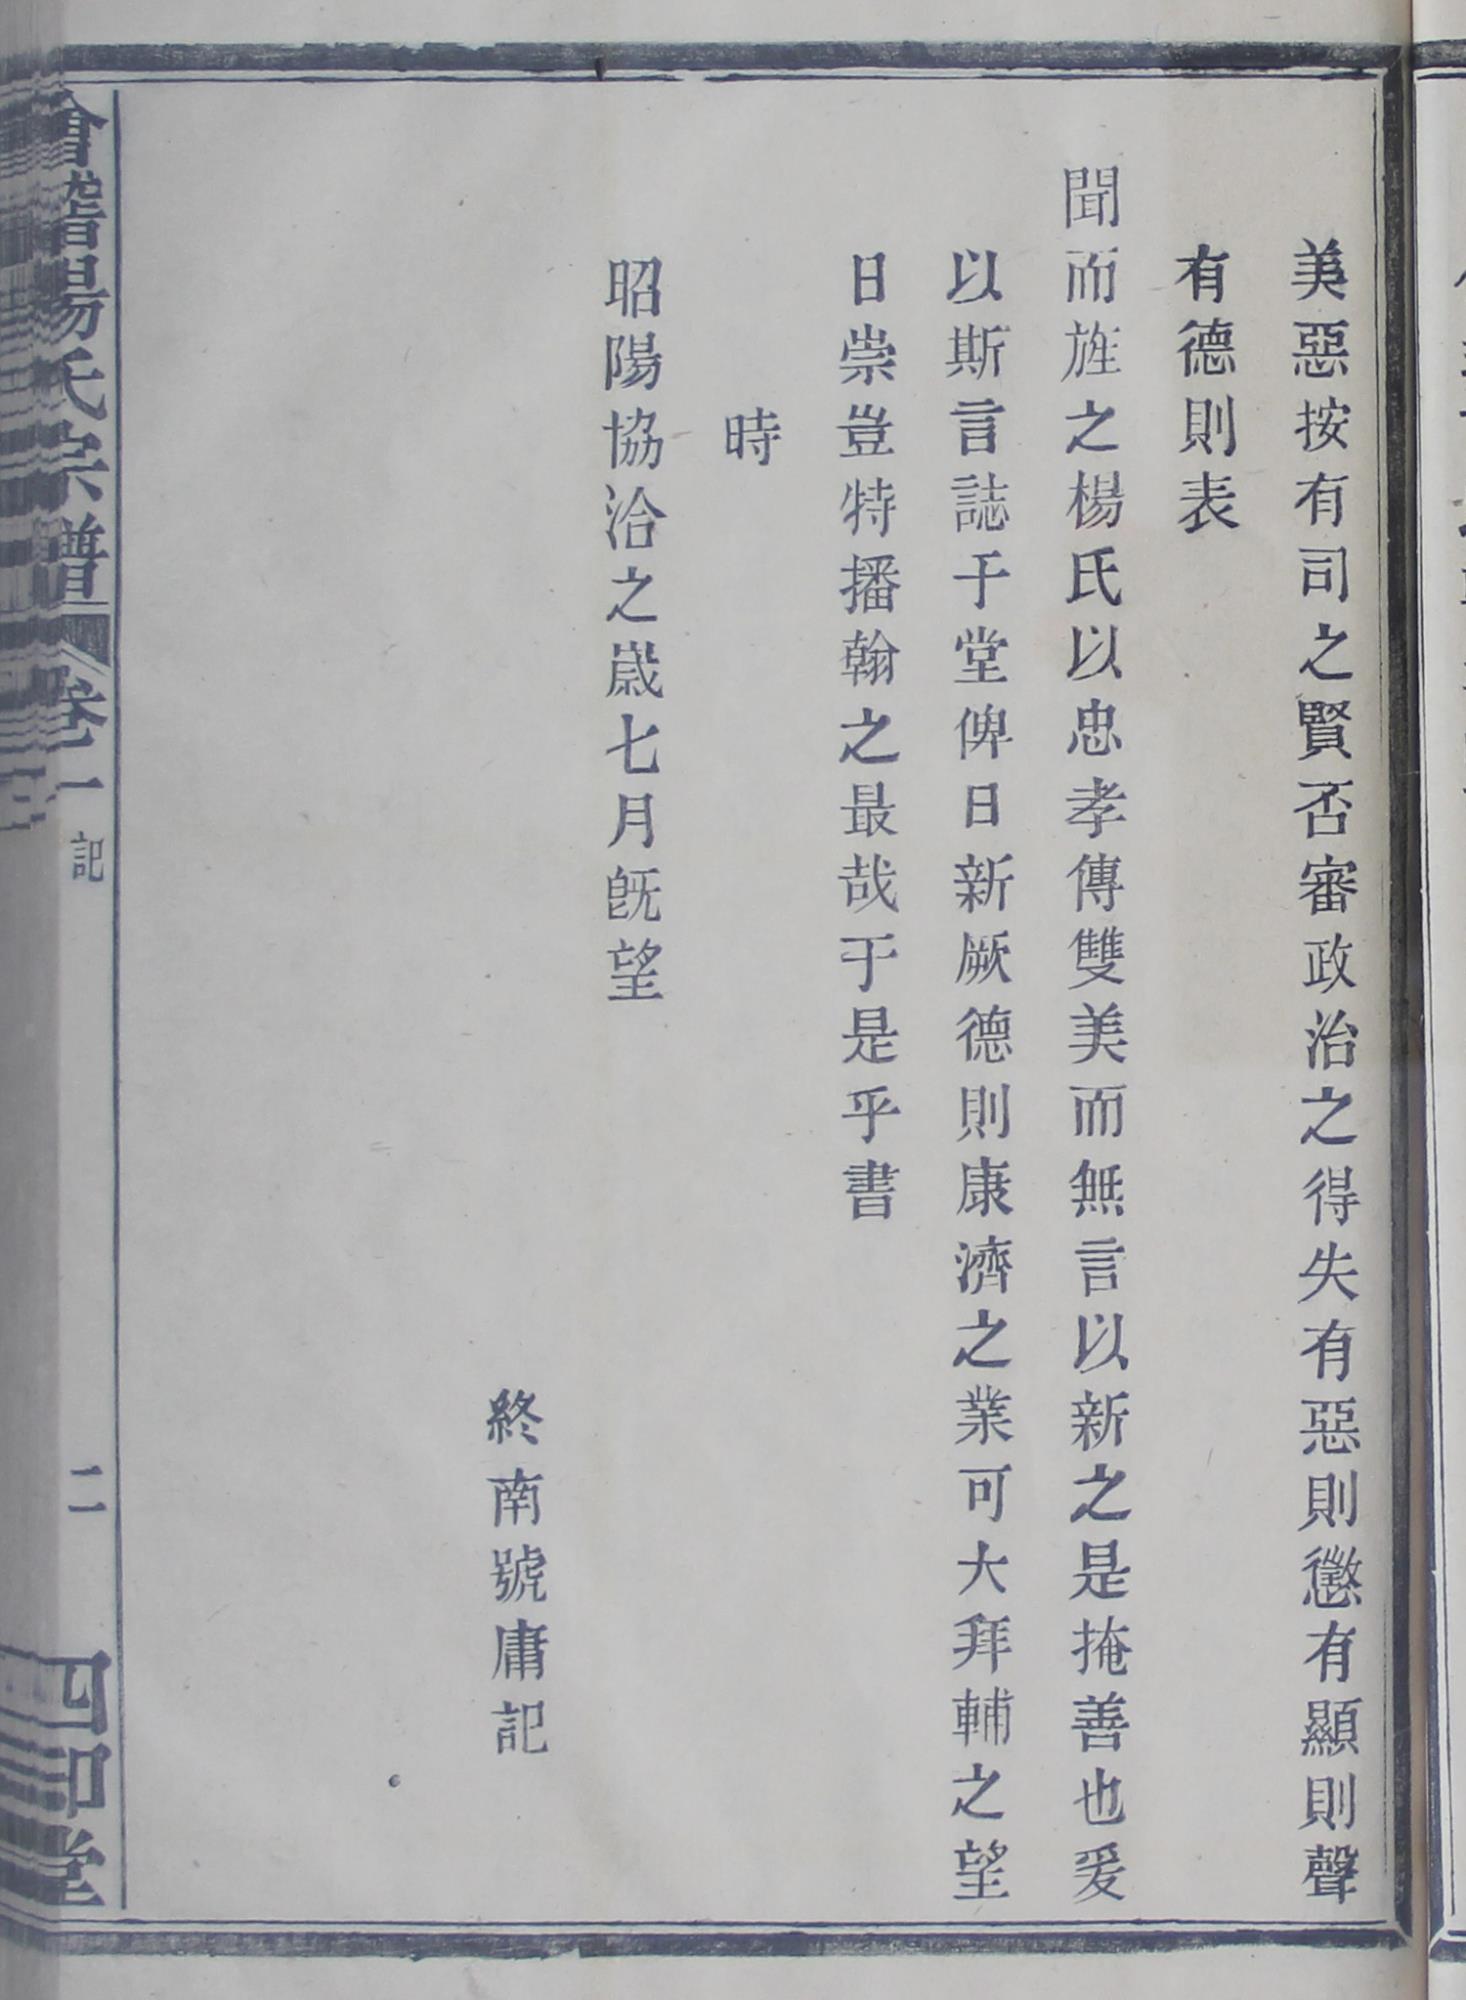 美惡按有司之賢否審政治之得失有惡則懲有顯則聲
有德則表
聞而旌之楊氏以忠孝傳雙美而無言以新之是掩善也爰
以斯言誌于堂俾日新厥德則康濟之業可大拜輔之望
日崇豈特播翰之最哉于是乎書
時
昭陽協洽之歲七月旣望
終南號庸記
會稽楊氏宗譜 卷一 記 二 四印堂